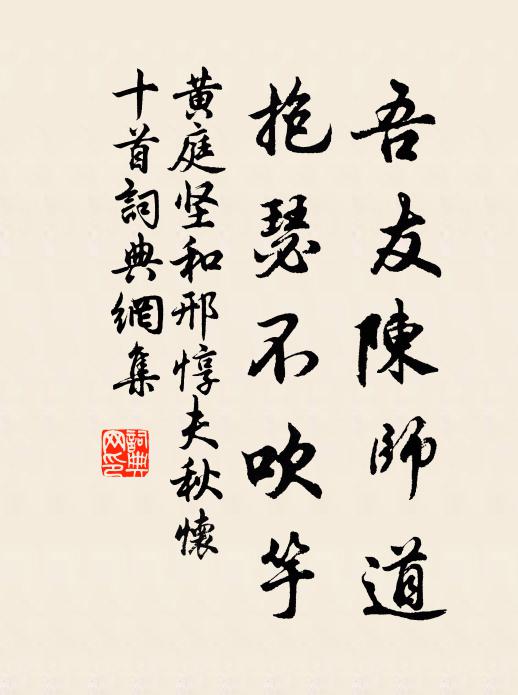 吾友陳師道
抱瑟不吹竽
黃庭坚和邢惇夫秋懷
十首詞典網集
詞典
网印